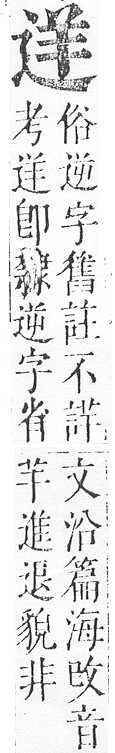 俗逆字舊註不詳
考即隸逆字省
文沿篇海改音
芊進退貌非